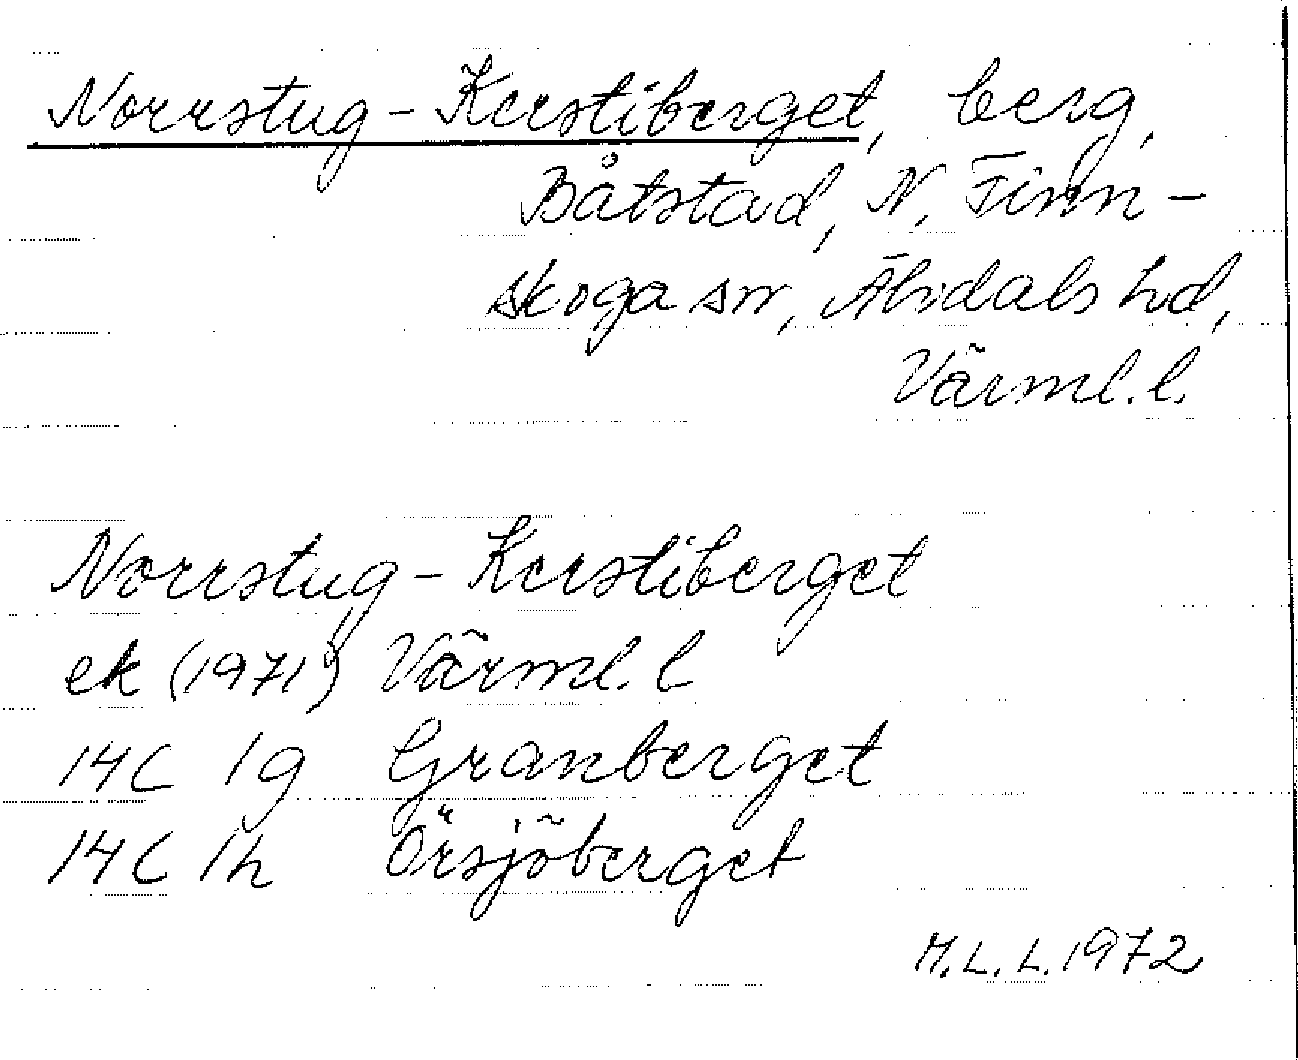 Norrstug-Kerstiberget, berg,
Båtstad, N. Finn-
skoga sn, Älvdals hd,
Värml. l.
Norrstug-Kerstiberget
ek (1971) Värml. l
14C 1g Granberget
14C 1h Örsjöberget
M.L.L. 1972